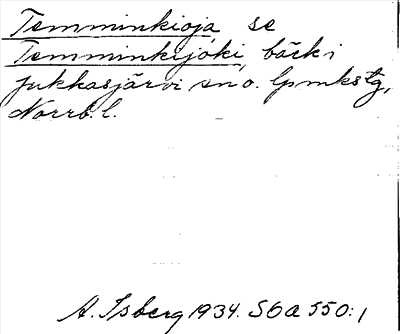 Temminkioja, se
Temminkijoki, bäck i
Jukkasjärvi sn o. lpmkstg,
Norrb. l.
A. Isberg 1934. S6a 550:1